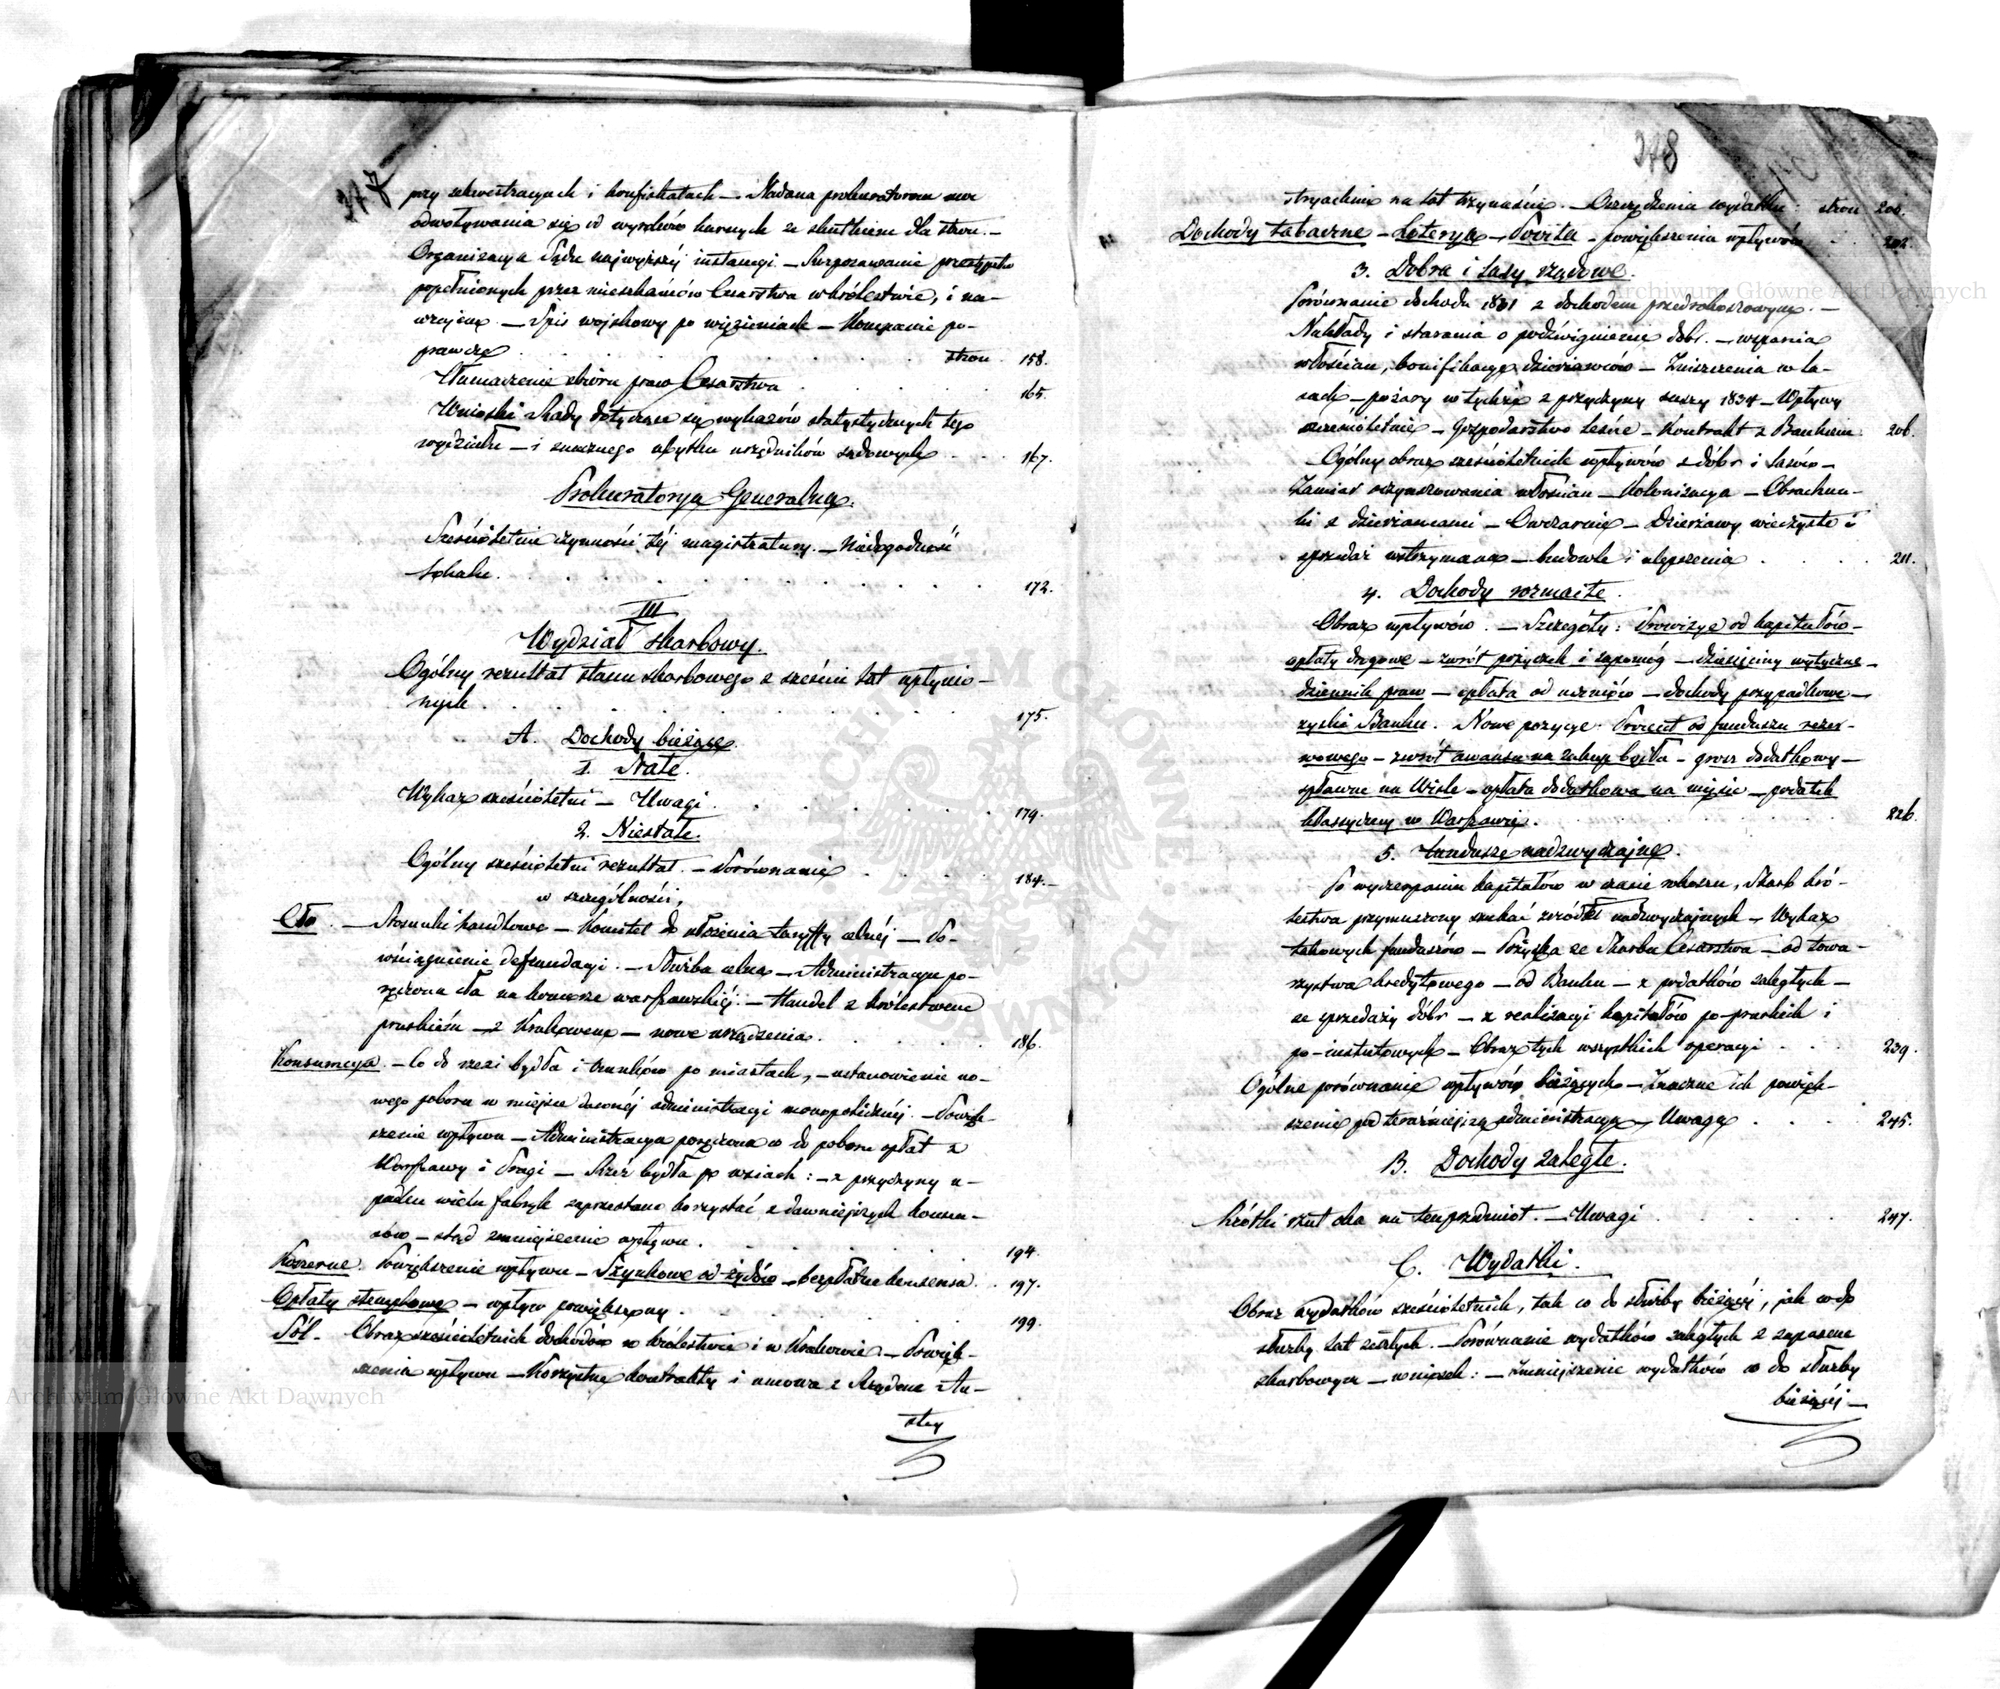 377
przy sekwestracyach i konfiskatach — Nadana prokuratorom moc
odwoływania się od wyroków karnych ze skutkiem dla stron. —
Organizacya Sądu najwyższéj instancyi. — Rozpoznawanie przestępstw
popełnionych przez mieszkańców Cesarstwa w królestwie, i na-
wzajem — Spis wojskowy po więzieniach — Kompanie po-
prawcze . . . stron 158.
Tłumaczenie zbioru praw Cesarstwa . . . 165.
Wnioski Rady dotyczące się wykazów statystycznych tego
wydziału — i znacznego ubytku urzędników sądowych . . . 167.
Prokuratorya Generalna.
Sześcioletnie czynności téj magistratury. — Niedogodność
lokalu . . . 172.
III
Wydział skarbowy.
Ogólny rezultat stanu skarbowego z sześciu lat upłynio-
nych . . . 175.
A. Dochody bieżące.
1. Stałe.
Wykaz sześcioletni — Uwagi . . . 179.
2. Niestałe.
Ogólny sześcioletni rezultat. — Porównanie . . . 184. —
w szczególności;
Cło. — Stosunki handlowe — Komitet do ułożenia taryffy celnéj — Po-
wściągnienie defraudacyi. — Służba celna — Administracya po-
ręczona cła na komorze warszawskiéj. — Handel z królestwem
pruskiém — z Krakowem — nowe urządzenia. . . . 186.
Konsumcya. — Co do rzezi bydła i trunków po miastach, — ustanowienie no-
wego poboru w miejsce dawnéj administracyi monopolicznéj. — Powięk-
szenie wpływu — Administracya poręczona co do poboru opłat z
Warszawy i Pragi — Rzeź bydła po wsiach: — z przyczyny u-
padku wielu fabryk zaprzestano korzystać z dawniejszych konsen-
sów — stąd zmniejszenie wpływu. . . . 194.
Koszerne. Powiększenie wpływu — Szynkowe od żydów — bezpłatne konsensa. . . 197.
Opłaty stemplowe — wpływ powiększony . . . 199.
Sól. Obraz sześcioletnich dochodów w Królestwie i w Krakowie. — Powięk-
szenia wpływu — Korzystne kontrakty i umowa z Rządem Au-
stry
378
stryackim na lat trzynaście. — Oszczędzenia wydatku: stron 200.
Dochody tabaczne — Loterya — Jowita — powiększenia wpływów . . 202.
3. Dobra i lasy rządowe.
Porównanie dochodu 1831 z dochodem przedrokoszowym. —
Nakłady i starania o podźwignienie dóbr. — wsparcia
włościan, bonifikacye dzierżawców — Zniszczenia w la-
sach — pożary w tychże z przyczyny suszy 1834 — Wpływy
sześcioletnie — Gospodarstwo leśne — Kontrakt z Bankiem. 206.
Ogólny obraz sześcioletnich wpływów z dóbr i lasów —
Zamiar oczynszowania włościan — Kolonizacya — Obrachun-
ki z dzierżawcami — Owczarnie — Dzierżawy wieczyste i
sprzedaż wstrzymana — budowle i ulepszenia . . . 211.
4. Dochody rozmaite.
Obraz wpływów. — Szczegóły: Prowizye od kapitałów —
opłaty drogowe — zwrót pożyczek i zapomóg — dziesięciny wytyczne —
dziennik praw — opłata od uczniów — dochody przypadkowe —
zyski Banku. Nowe pozycye: Procent od funduszu rezer-
wowego — zwrót awansu na zakup bydła — grosz dodatkowy —
spławne na Wiśle — opłata dodatkowa na mięsie — podatek
klassyczny w Warszawie. . . . 226.
5. Fundusze nadzwyczajne.
Po wyczerpaniu kapitałów w czasie rokoszu, Skarb kró-
lestwa przymuszony szukać zródeł nadzwyczajnych — Wykaz
takowych funduszów — Pożyczka ze Skarbu Cesarstwa — od towa-
rzystwa kredytowego — od Banku — z podatków zaległych —
ze sprzedaży dóbr — z realizacyi kapitałów po-pruskich i
po-instytutowych — Obraz tych wszystkich operacyi . . . 239.
Ogólne porównanie wpływów bieżących — Znaczne ich powięk-
szenie pod teraźniejszą administracyą — Uwagi . . . 245.
B. Dochody zaległe.
Krótki rzut oka na ten przedmiot. — Uwagi . . . 247.
C. Wydatki.
Obraz wydatków sześcioletnich, tak co do służby bieżącéj, jak co do
służby lat zeszłych. — Porównanie wydatków zaległych z zapasem
skarbowym — wniosek: — Zmniejszenie wydatków co do służby
bieżącéj —
Archiwum Główne Akt Dawnych
Archiwum Główne Akt Dawnych
ARCHIWUM GŁÓWNE AKT DAWNYCH